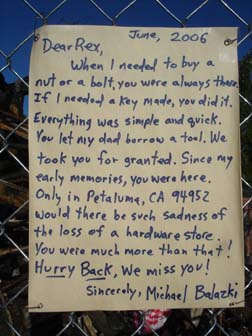 June, 2006
Dear Rex,
When I needed to buy a
nut or a bolt, you were always there.
If I needed a key made, you did it.
Everything was simple and quick.
You let my dad borrow a tool. We
took you for granted. Since my
early memories, you were here.
Only in Petaluma, CA 94952
would there be such sadness of
the loss of a hardware store.
You were much more than that!
Hurry Back, We miss you!
Sincerely, Michael Balazki